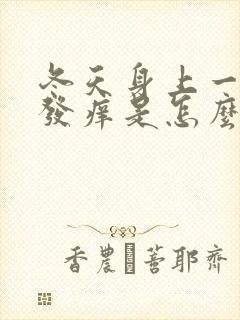 冬天身上一
發痒是怎麼
香農·菩耶齊